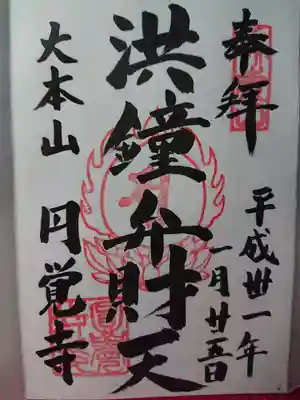 奉拝
平成丗一年
一月廿五日
洪鐘弁財天
大本山 円覚寺